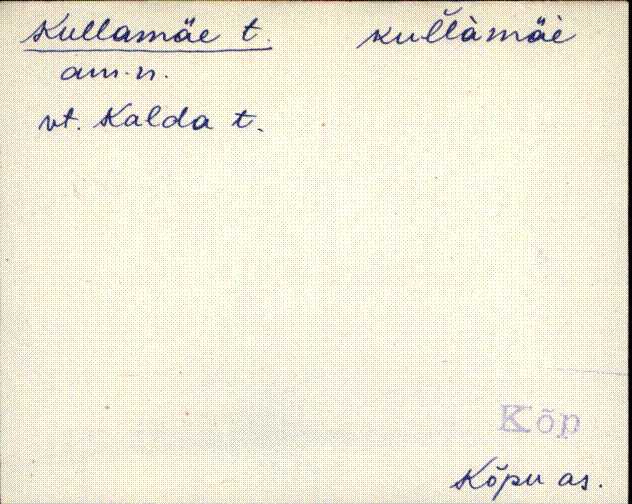 Kullamäe t. kul̆làmäè
am.n.
vt. Kalda t.
Kõp
Kõpu as.